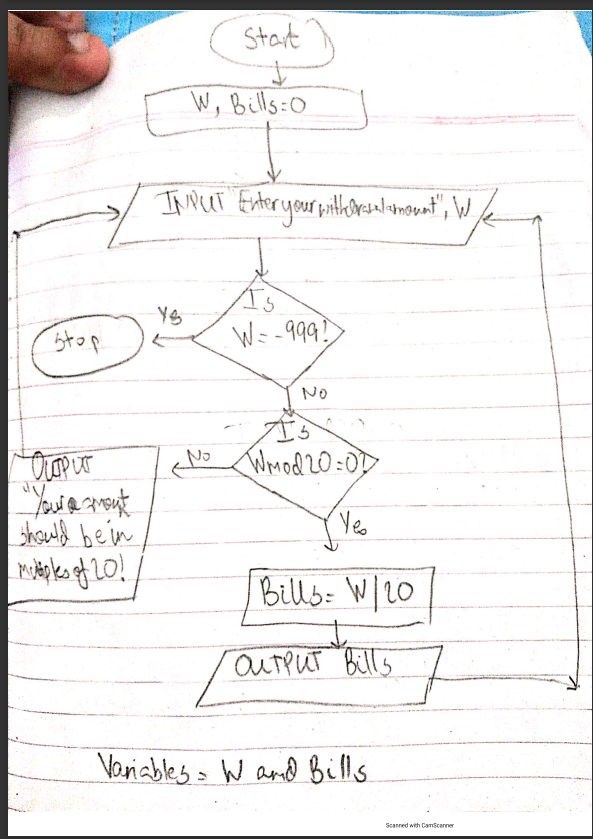 Start
W, Bills=0
INPUT "Enter your withdrawal amount", W
Is
W=-999?
Yes
Stop
No
Is
Wmod20=0?
No
OUTPUT
"Your amount
should be in
multiples of 20!
Yes
Bills= W/20
OUTPUT Bills
Variables = W and Bills
Scanned with CamScanner